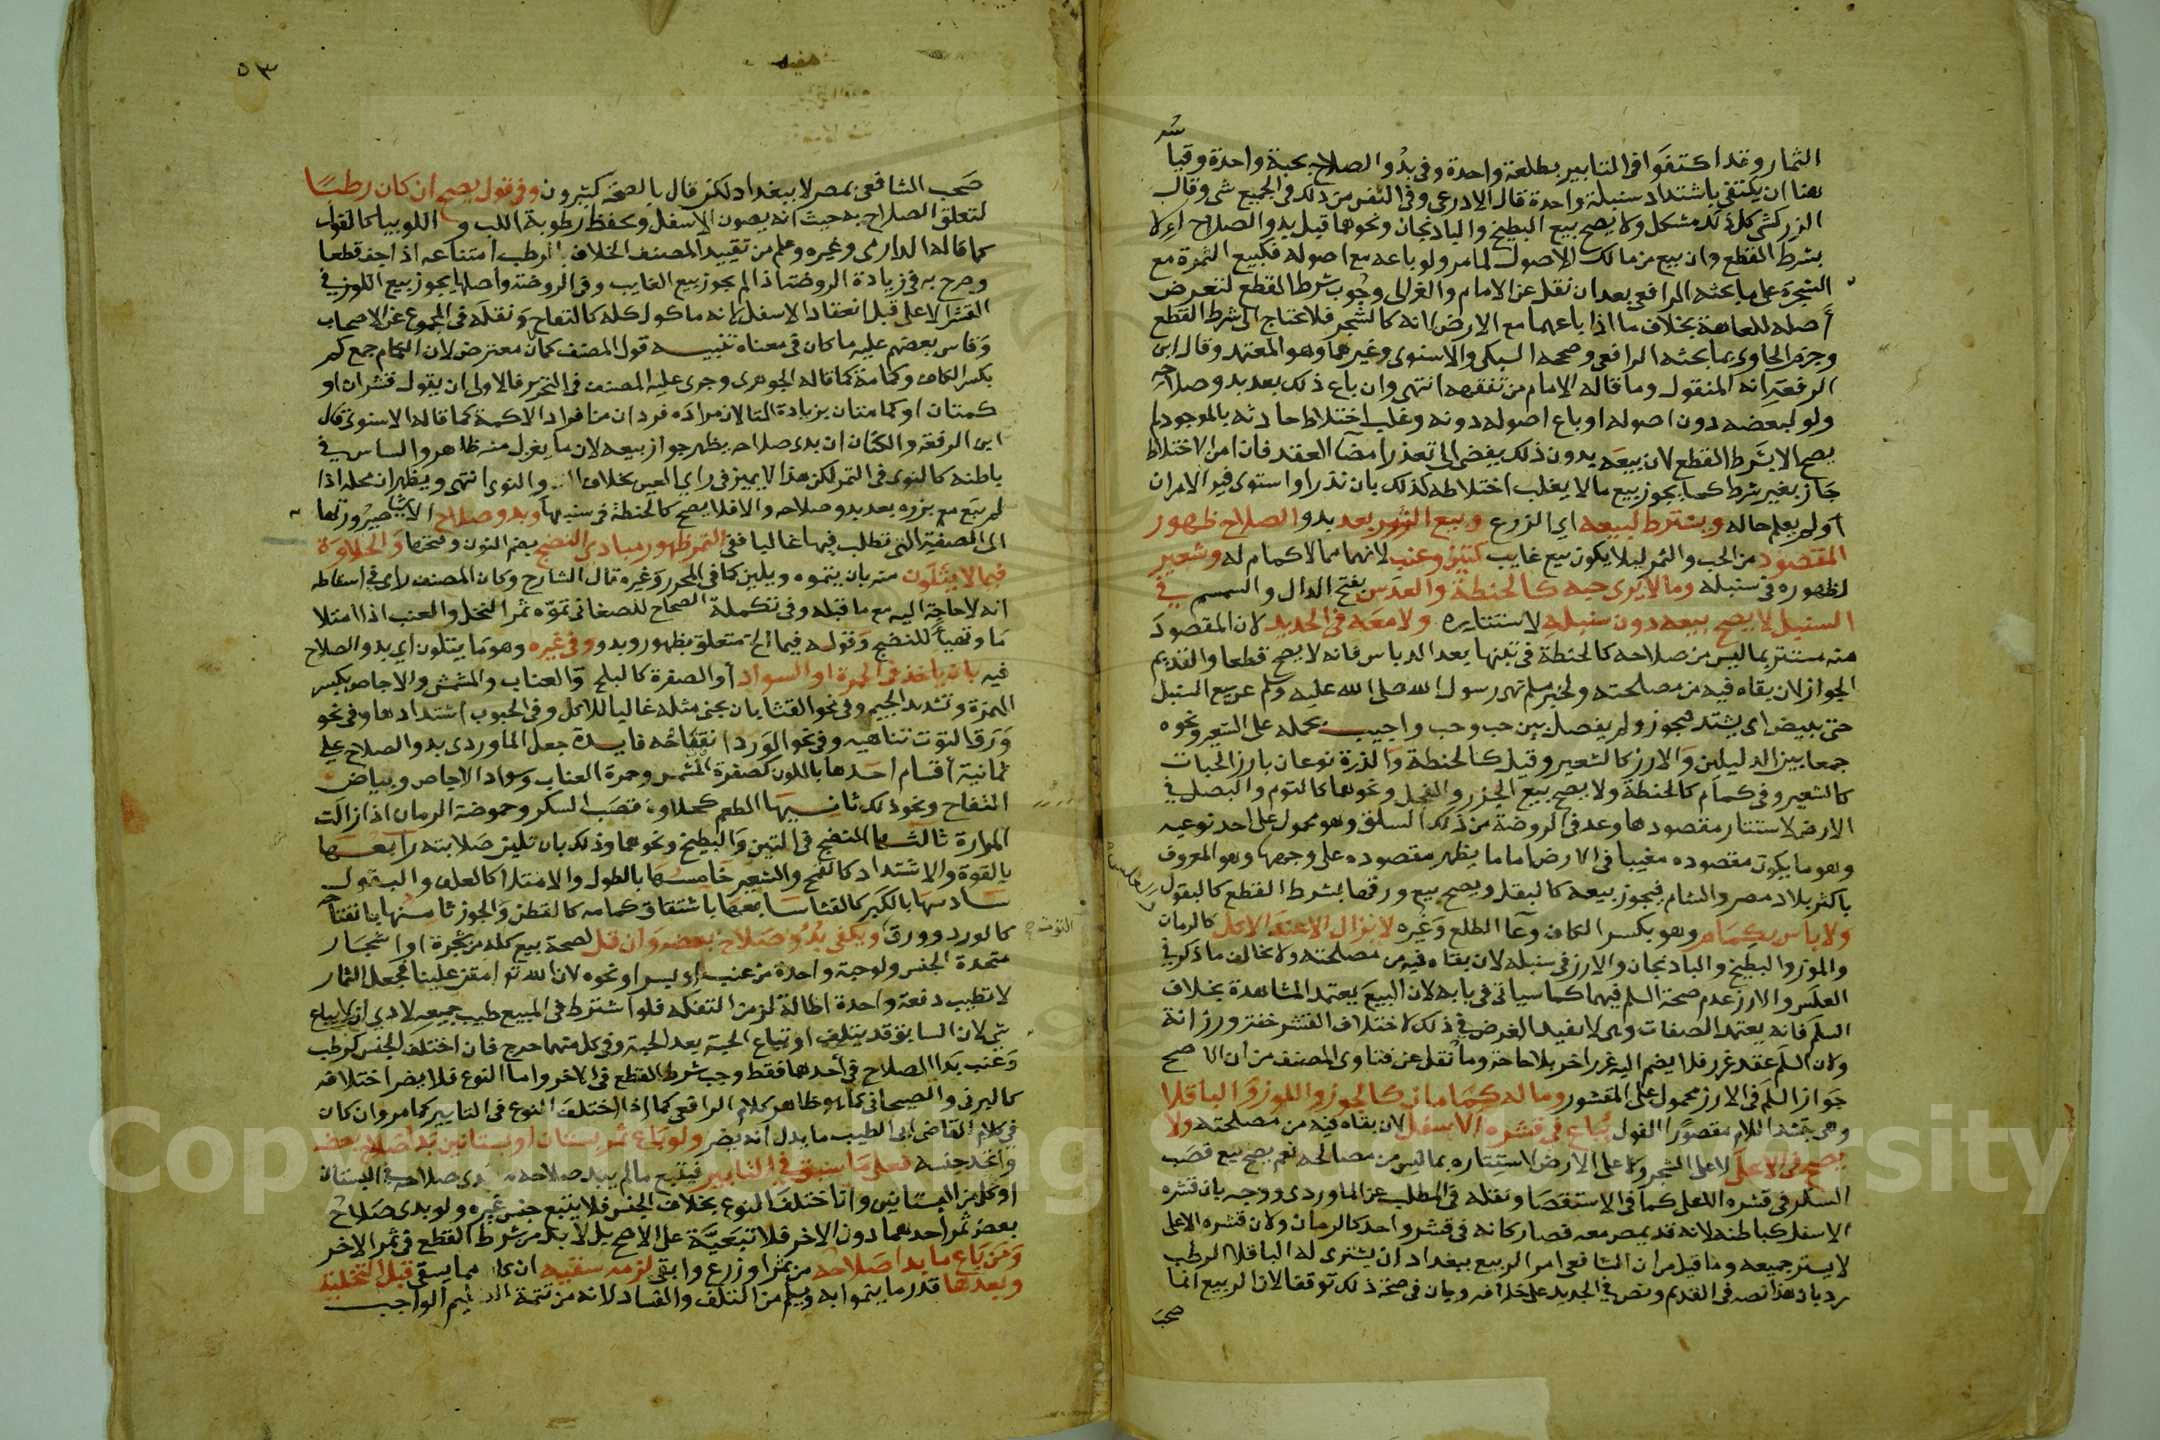 الثمار وقد اكتفوا في التابير بطلعة واحدة وفي بدو الصلاح بحبة واحدة وقياسه
هنا ان يكتفي باشتداد سنبلة واحدة قال الاذرعي وفي النفس من ذلك في الجميع شي وقال
الزركشي كل ذلك مشكل ولا يصح بيع البطيخ والباذنجان ونحوهما قبل بدو الصلاح الا
بشرط القطع وان بيع من مالك الاصول لما مر ولو باعه مع اصوله فكبيع الثمرة مع
الشجرة على ما بحثه الرافعي بعد ان نقل عن الامام والغزالي وجوب شرط القطع لتعرض
اصله للعاهة بخلاف ما اذا باعهما مع الارض لانه كالشجر فلا يحتاج الى شرط القطع
وجزم الحاوي بما بحثه الرافعي وصححه السبكي والاسنوي وغيرهما وهو المعتمد وقال ابن
الرفعة انه المنقول وما قاله الامام من تفقهه انتهى وان باع ذلك بعد بدو صلاحه
ولو لبعضه دون اصوله او باع اصوله دونه وغلب اختلاط حادثه بالموجود لم
يصح الا بشرط القطع لان بيعه بدون ذلك يفضي الى تعذر امضا العقد فان امن الاختلاط
جاز بغير شرط كما يجوز بيع ما لا يغلب اختلاطه كذلك بان ندر او استوى فيه الامران
او لم يعلم حاله ويشترط لبيعه اي الزرع وبيع الثمر بعد بدو الصلاح ظهور
المقصود من الحب والثمر ليلا يكون بيع غايب كتين وعنب لانهما مما لا كمام له وشعير
لظهوره في سنبله وما لا يرى حبه كالحنطة والعدس بفتح الدال والسمسم في
السنبل لا يصح بيعه دون سنبله لاستتاره ولا معه في الجديد لان المقصود
منه مستتر بما ليس من صلاحه كالحنطة في تبنها بعد الدياس فانه لا يصح قطعا والقديم
الجواز لان بقاه فيه من مصلحته ولخبر مسلم نهى رسول الله صلى الله عليه وسلم عن بيع السنبل
حتى يبيض اي يشتد فيجوز ولم يفصل بين حب وحب واجيب بحمله على الشعير ونحوه
جمعا بين الدليلين والارز كالشعير وقيل كالحنطة والذرة نوعان بارز الحبات
كالشعير وفي كمام كالحنطة ولا يصح بيع الجزر والفجل ونحوهما كالثوم والبصل في
الارض لاستتار مقصودها وعد في الروضة من ذلك السلق وهو محمول على احد نوعيه
وهو ما يكون مقصوده مغيبا في الارض اما ما يظهر مقصوده على وجهها وهو المعروف
باكثر بلاد مصر والشام فيجوز بيعه كالبقل ويصح بيع ورقها بشرط القطع كالبقول
ولا باس بكمام وهو بكسر الكاف وعا الطلع وغيره لا يزال الا عند الاكل كالرمان
والموز والبطيخ والباذنجان والارز في سنبله لان بقاه فيه من مصلحته ولا يخالف ما ذكر في
العلس والارز عدم صحة السلم فيهما كما سياتي في بابه لان البيع يعتمد المشاهدة بخلاف
السلم فانه يعتمد الصفات وهي لا تفيد الغرض في ذلك لاختلاف القشر خفة ورزانة
ولان السلم عقد غرر فلا يضم اليه غرر اخر بلا حاجة وما نقل عن فتاوى المصنف من ان الاصح
جواز السلم في الارز محمول على المقشور وما له كمامان كالجوز واللوز والباقلا
وهي بتشديد اللام مقصورا الفول يباع في قشره الاسفل لان بقاه فيه من مصلحته ولا
يصح في الاعلى لا على الشجر ولا على الارض لاستتاره بما ليس من مصالحه نعم يصح بيع قصب
السكر في قشره الاعلى كما في الاستقصا ونقله في المطلب عن الماوردي ووجه بان قشره
الاسفل كباطنه لانه قد يمص معه فصار كانه في قشر واحد كالرمان ولان قشره الاعلى
لا يستر جميعه وما قيل من ان الشافعي امر الربيع ببغداد ان يشتري له الباقلا الرطب
رد بان هذا نصه في القديم ونص في الجديد على خلافه وبان في صحة ذلك توقفا لان الربيع انما
صحب
٥٣
صحب الشافعي بمصر لا ببغداد لكن قال بالصحة كثيرون وفي قول يصح ان كان رطبا
لتعلق الصلاح به حيث انه يصون الاسفل ويحفظ رطوبة اللب واللوبيا كالفول
كما قاله الدارمي وغيره وعلم من تقييد المصنف الخلاف بالرطب امتناعه اذا جف قطعا
وصرح به في زيادة الروضة اذا لم يجوز بيع الغايب وفي الروضة واصلها يجوز بيع اللوز في
القشر الاعلى قبل انعقاد الاسفل لانه ماكول كله كالتفاح ونقله في المجموع عن الاصحاب
وقاس بعضهم عليه ما كان في معناه تنبيه قول المصنف كمان معترض لان الكمام جمع كم
بكسر الكاف وكمامة كما قاله الجوهري وجرى عليه المصنف في التحرير فالاولى ان يقول قشران او
كمتان او كمامتان بزيادة التا لان مراده فردان من افراد الاكمة كما قاله الاسنوي قال
ابن الرفعة والكتان ان بدى صلاحه يظهر جواز بيعه لان ما يغزل منه ظاهر والساس في
باطنه كالنوى في التمر لكن هذا لا يميز في راي العين بخلاف والنوى انتهى ويظهر ان محله اذا
لم يبع مع بزره بعد بدو صلاحه والا فلا يصح كالحنطة في سنبلها وبدو صلاح الاشيا صيرورتها
الى الصفة التي تطلب فيها غالبا ففي الثمر ظهور مبادي النضج بضم النون وفتحها والحلاوة
فيما لا يتلون منه بان يتموه ويلين كما في المحرر وغيره قال الشارح وكان المصنف راى في اسقاطه
انه لا حاجة اليه مع ما قبله وفي تكملة الصحاح للصغاني تموه ثمر النخل والعنب اذا امتلا
ما وتهيا للنضج وقوله فيما الخ متعلق بظهور وبدو وفي غيره وهو ما يتلون اي بدو الصلاح
فيه بان ياخذ في الحمرة او السواد او الصفرة كالبلح والعناب والمشمش والاجاص بكسر
الهمزة وتشديد الجيم وفي نحو القثا بان يجنى مثله غالبا للاكل وفي الحبوب اشتدادها وفي نحو
ورق التوت تناهيه وفي نحو الورد انفتاحه فايدة جعل الماوردي بدو الصلاح على
ثمانية اقسام احدها باللون كصفرة المشمش وحمرة العناب وسواد الاجاص وبياض
التفاح ونحو ذلك ثانيها الطعم كحلاوة قصب السكر وحموضة الرمان اذا زالت
المرارة ثالثها النضج في التين والبطيخ ونحوهما وذلك بان تلين صلابته رابعها
بالقوة والاشتداد كالقمح والشعير خامسها بالطول والامتلا كالعلف والبقول
سادسها بالكبر كالقثا سابعها باشتقاق كمامه كالقطن والجوز ثامنها بانفتاحه
كالورد وورق ويكفي بدو صلاح بعضه وان قل لصحة بيع كله من شجرة او اشجار
التوت صح
متحدة الجنس ولو حبة واحدة من عنب او بسر او نحوه لان الله تعالى امتن علينا فجعل الثمار
لا تطيب دفعة واحدة اطالة لزمن التفكه فلو اشترط في المبيع طيب جميعه لادى ان لا يباع
شي لان السابق قد يتلف او تباع الحبة بعد الحبة وفي كل منهما حرج فان اختلف الجنس كرطب
وعنب بدا الصلاح في احدهما فقط وجب شرط القطع في الاخر واما النوع فلا يضر اختلافه
كالبرني والصيحاني كما هو ظاهر كلام الرافعي كما اذا اختلف النوع في التابير كما مر وان كان
في كلام القاضي ابي الطيب ما يدل انه يضر ولو باع ثمر بستان او بستانين بدا صلاح بعضه
واتحد جنسه فعلى ما سبق في التابير فيتبع ما لم يبد صلاحه ما بدى صلاحه في البستان
او كل من البستانين وان اختلف النوع بخلاف الجنس فلا يتبع جنس غيره ولو بدى صلاح
بعض ثمر احدهما دون الاخر فلا تبعية على الاصح بل لا بد من شرط القطع في ثمر الاخر
ومن باع ما بدا صلاحه من ثمر او زرع وابقى لزمه سقيه ان كان مما يسقى قبل التخلية
وبعدها قدر ما ينمو به ويسلم من التلف والفساد لانه من تتمة التسليم الواجب
Copyright © King Saud University